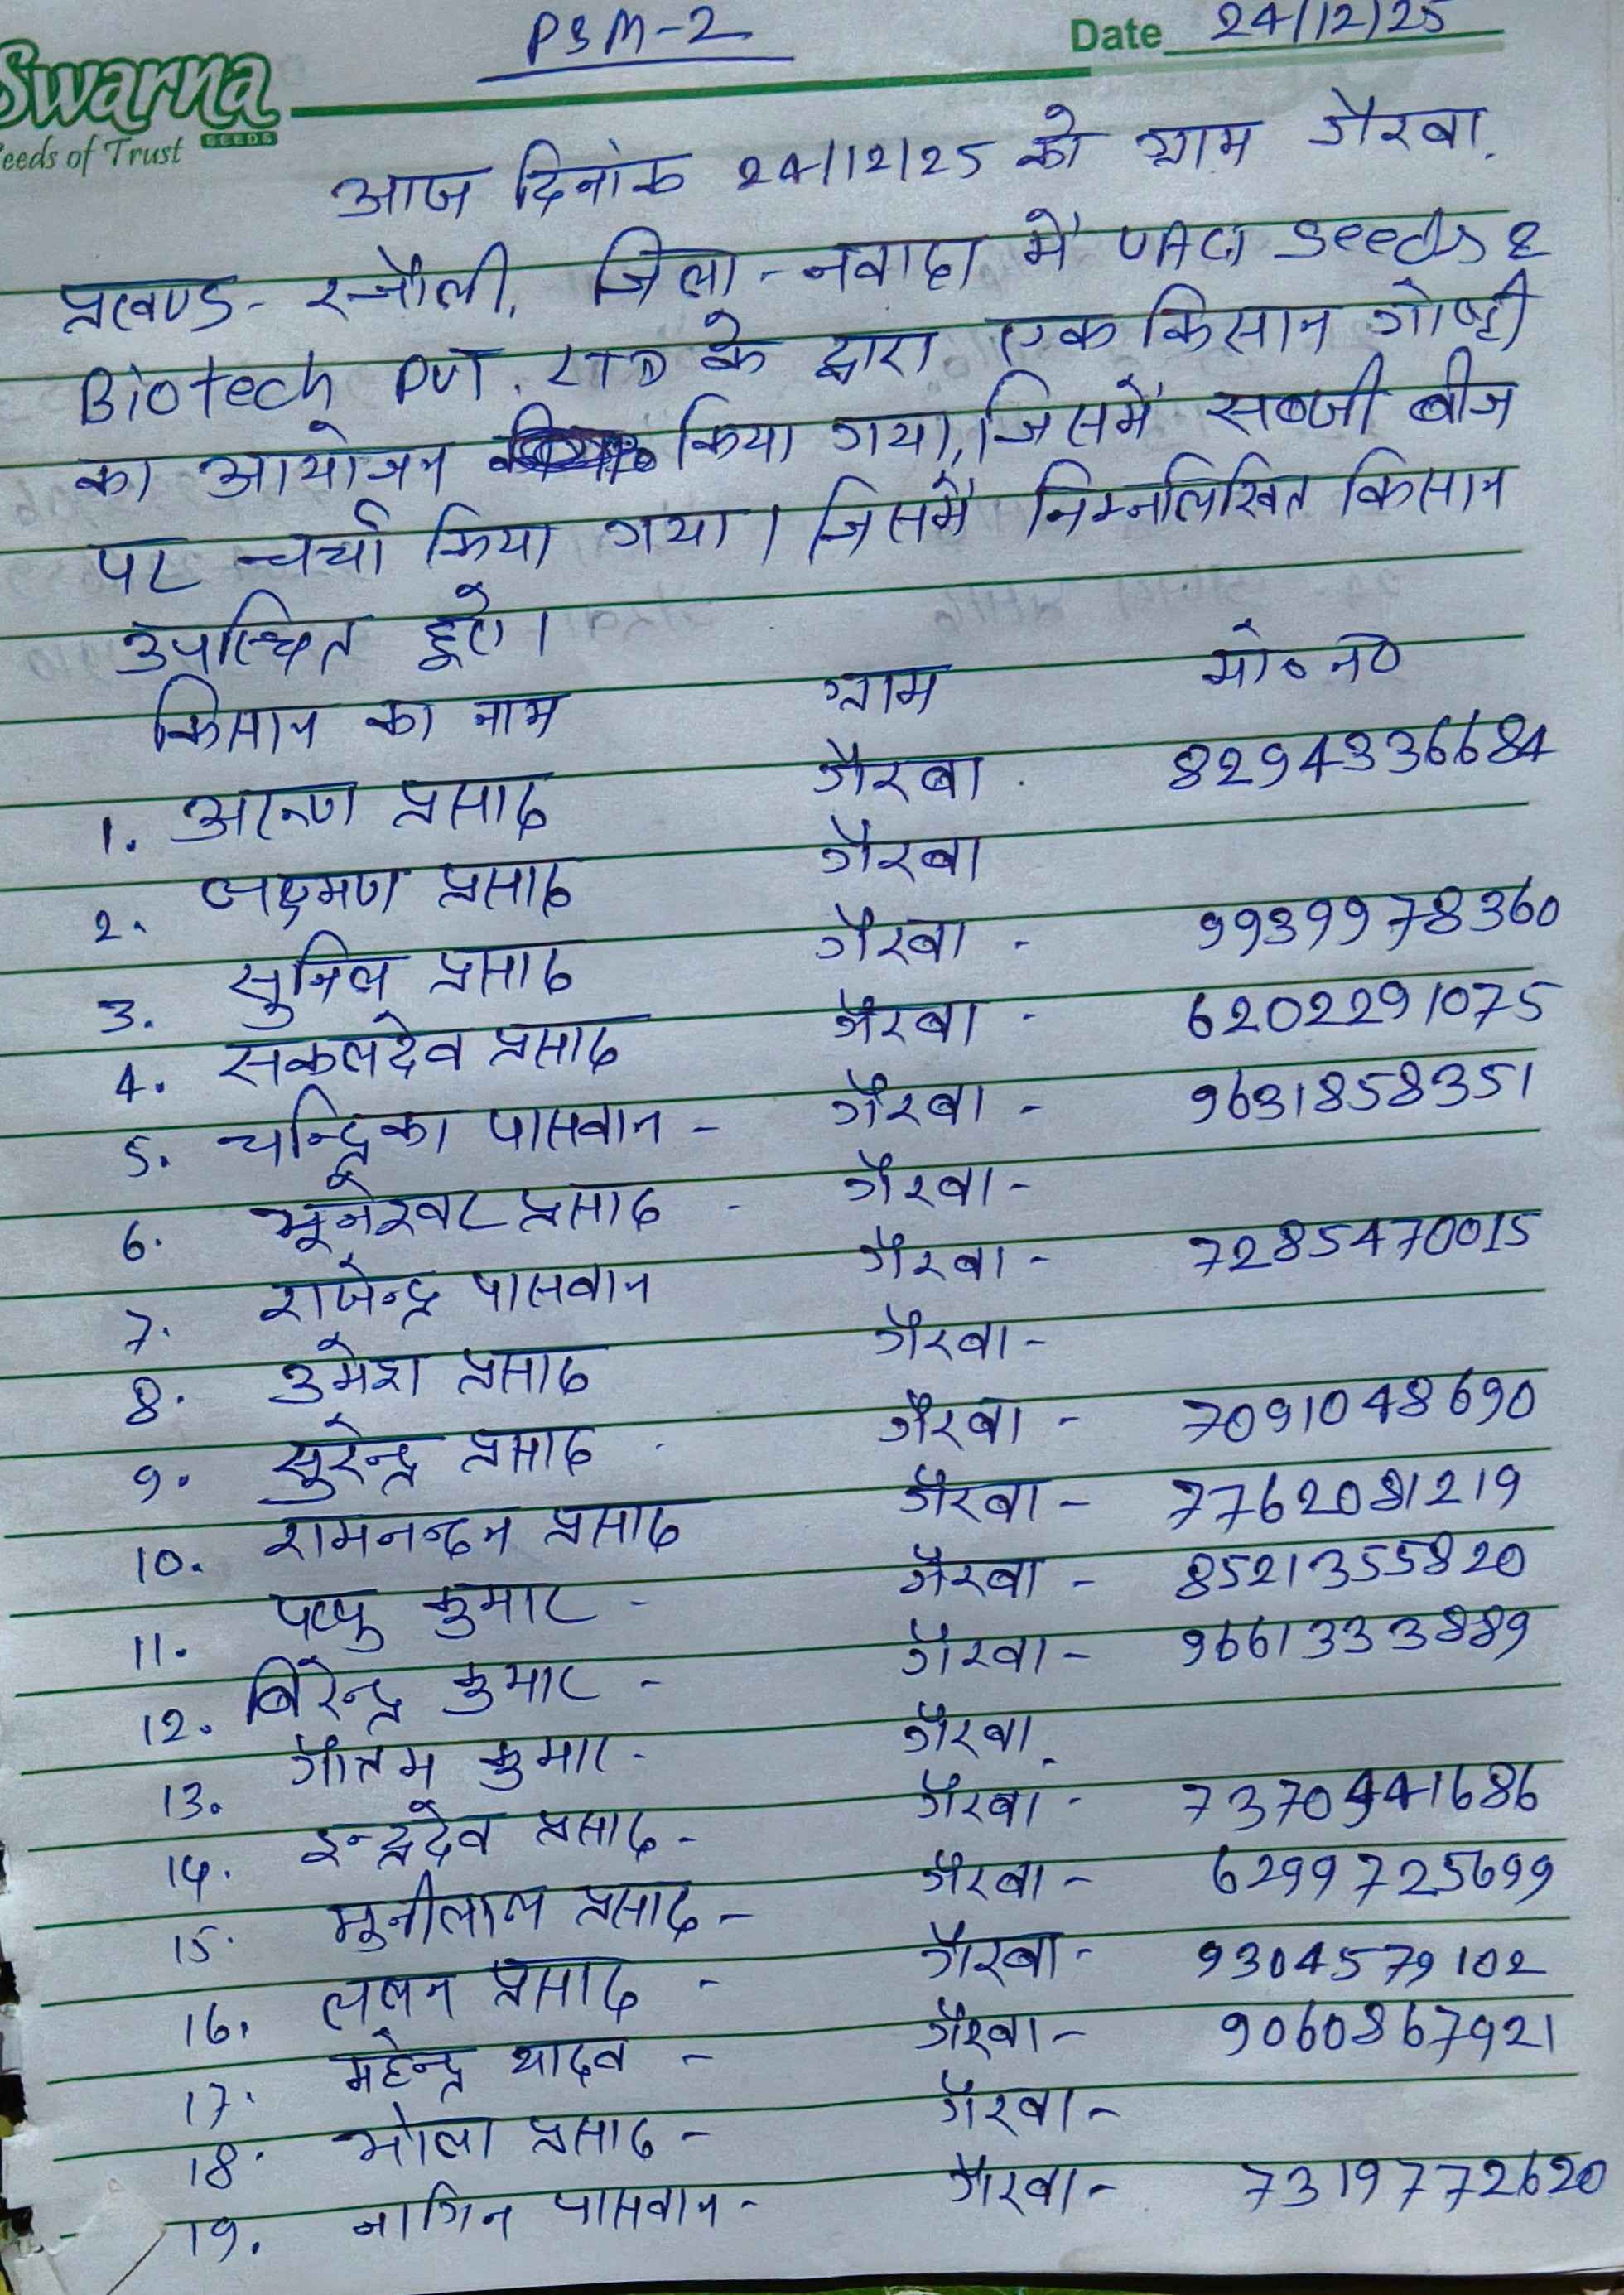 PSM-2
Date 24/12/25
Swarna
SEEDS
eeds of Trust
आज दिनांक 24/12/25 को ग्राम गैरबा,
प्रखण्ड - रजौली, जिला - नवादा में UAG Seeds &
Biotech PVT. LTD के द्वारा एक किसान गोष्टी
का आयोजन किया गया, जिसमें सब्जी बीज
पर चर्चा किया गया। जिसमें निम्नलिखित किसान
उपस्थित हुए।
किसान का नाम ग्राम मो० न०
1. अरुण प्रसाद गैरबा . 8294336684
2. लक्ष्मण प्रसाद गैरबा
3. सुनिल प्रसाद गैरबा - 9939978360
4. सकलदेव प्रसाद गैरबा - 6202291075
5. चन्द्रिका पासवान - गैरबा - 9631858351
6. भूनेश्वर प्रसाद - गैरबा -
7. राजेन्द्र पासवान गैरबा - 7285470015
8. उमेश प्रसाद गैरबा -
9. सुरेन्द्र प्रसाद . गैरबा - 7091048690
10. रामनन्दन प्रसाद गैरबा - 7762081219
11. पप्पु कुमार - गैरबा - 8521355820
12. बिरेन्द्र कुमार - गैरबा - 9661333889
13. गौतम कुमार - गैरबा
14. इन्द्रदेव प्रसाद - गैरबा - 7370441686
15. मुनीलाल प्रसाद - गैरबा - 6299725699
16. ललन प्रसाद - गैरबा - 9304579102
17. महेन्द्र यादव - गैरबा - 9060867921
18. भोला प्रसाद - गैरबा -
19. नागिन पासवान - गैरबा - 7319772620